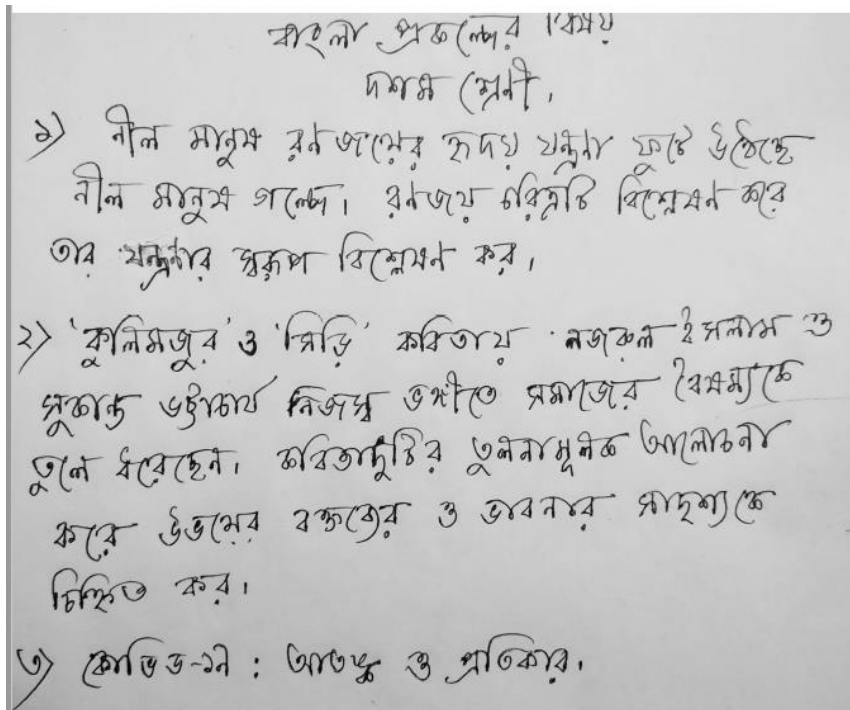 বাংলা প্রকল্পের বিষয়
দশম শ্রেনী।
১) নীল মানুষ রনজয়ের হৃদয় যন্ত্রনা ফুটে উঠেছে
নীল মানুষ গল্পে। রনজয় চরিত্রটি বিশ্লেষন করে
তার যন্ত্রনার স্বরূপ বিশ্লেষন কর।
২) 'কুলিমজুর' ও 'সিঁড়ি' কবিতায় নজরুল ইসলাম ও
সুকান্ত ভট্টাচার্য নিজস্ব ভঙ্গীতে সমাজের বৈষম্যকে
তুলে ধরেছেন। কবিতাদুটির তুলনামূলক আলোচনা
করে উভয়ের বক্তব্যের ও ভাবনার সাদৃশ্যকে
চিহ্নিত কর।
৩) কোভিড-১৯ : আতঙ্ক ও প্রতিকার।